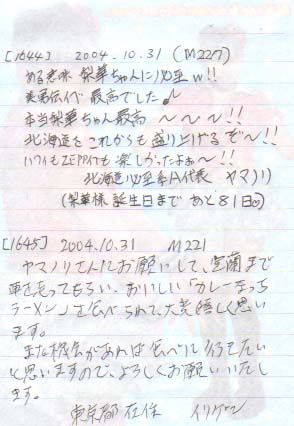 [1644] 2004.10.31 (M227)
ある意味 梨華ちゃんに必至w!!
美勇伝イベ 最高でした♪
本当梨華ちゃん最高 〜〜〜!!
北海道をこれからも盛り上げるぞ〜!!
ハワイも楽しかったよぉ〜!!
北海道必至系A代表 ヤマノリ
(梨華様 誕生日まで あと81日)
[1645] 2004.10.31 M221
ヤマノリさんにお願いして、室蘭まで
車を走ってもらい、おいしい「カレーらっち
ラーメン」を食べられて、大変嬉しく思い
ます。
また機会があれば食べに行きたい
と思いますので、よろしくお願いいたし
ます。
東京都 在住 イリゲン